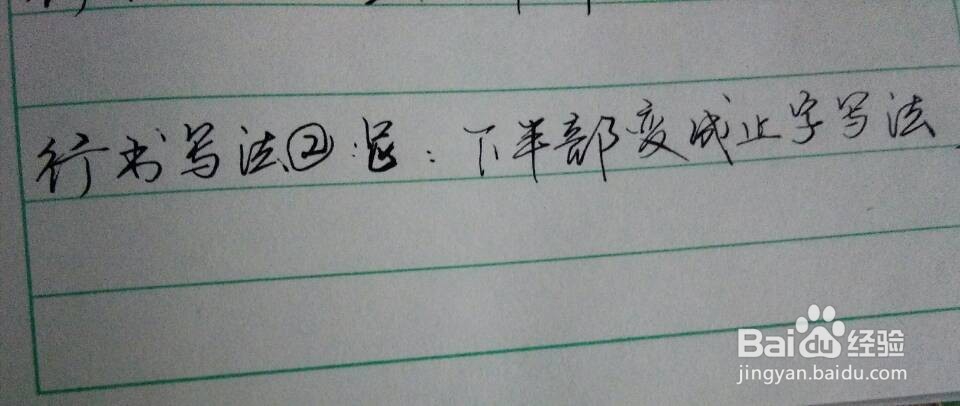 行书写法②:足:下半部变成止字写法
Baidu经验
jingyan.baidu.com